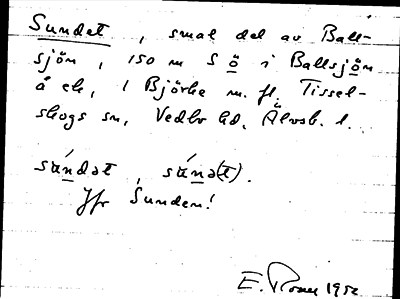 Sundet, smal del av Ball-
sjön, 150 m S ö i Ballsjön
å ek, 1 Björke m. fl. Tissel-
skogs sn, Vedbo hd, Älvsb. l.
sándət, sánə(t).
Jfr Sunden!
E. Rosell 1952